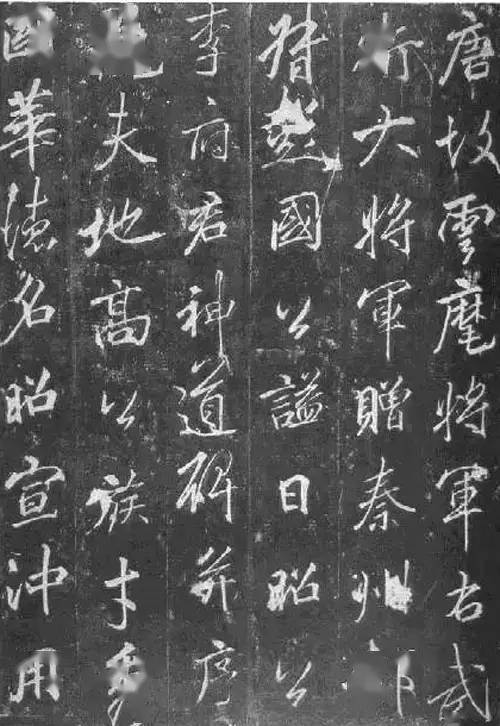 唐故雲麾將軍右武
大將軍贈秦州
督國公謚曰昭公
李府君神道碑并序
夫地高公族才
華德名昭宣沖用